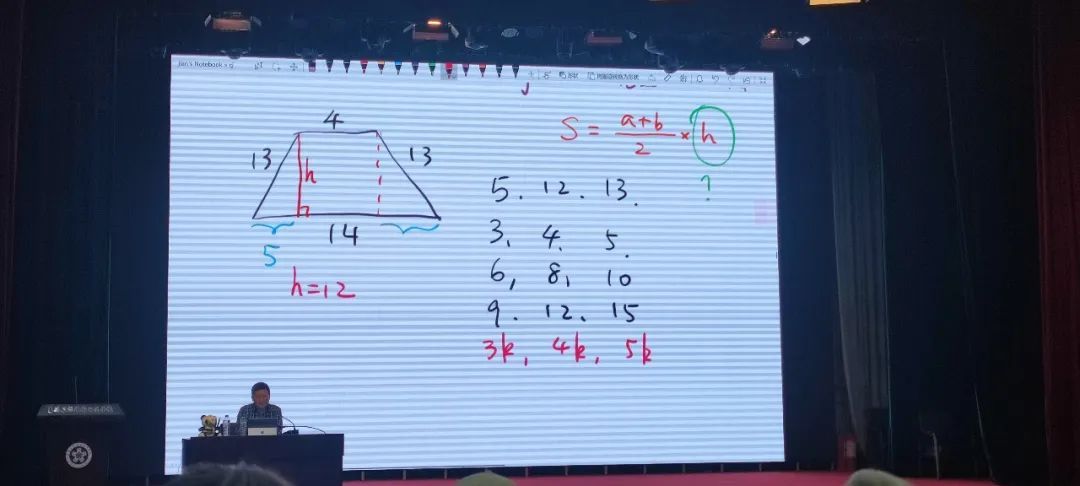 Jian's Notebook
4
S = a+b/2 × h
13
h
13
?
5. 12. 13.
14
3, 4. 5.
5
6, 8, 10
h=12
9. 12. 15
3k, 4k, 5k